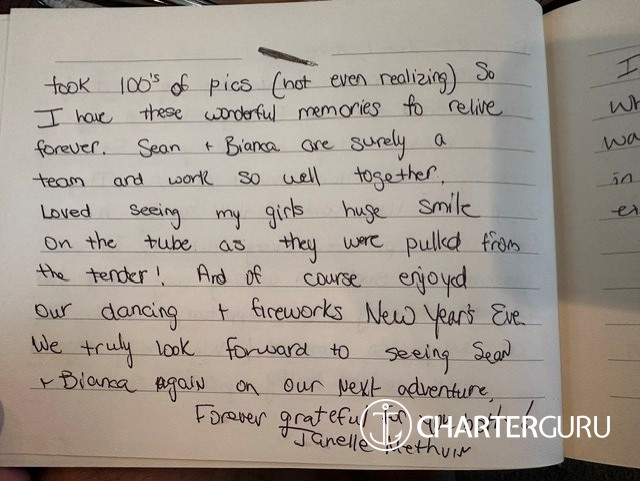 took 100's of pics (not even realizing) So
I have these wonderful memories to relive
forever. Sean + Bianca are surely a
team and work so well together.
Loved seeing my girls huge smile
on the tube as they were pulled from
the tender! And of course enjoyed
our dancing + fireworks New Year's Eve
We truly look forward to seeing Sean
+ Bianca again on our next adventure.
Forever grateful for you both!
CHARTERGURU
Janelle
I
wh
wa
in